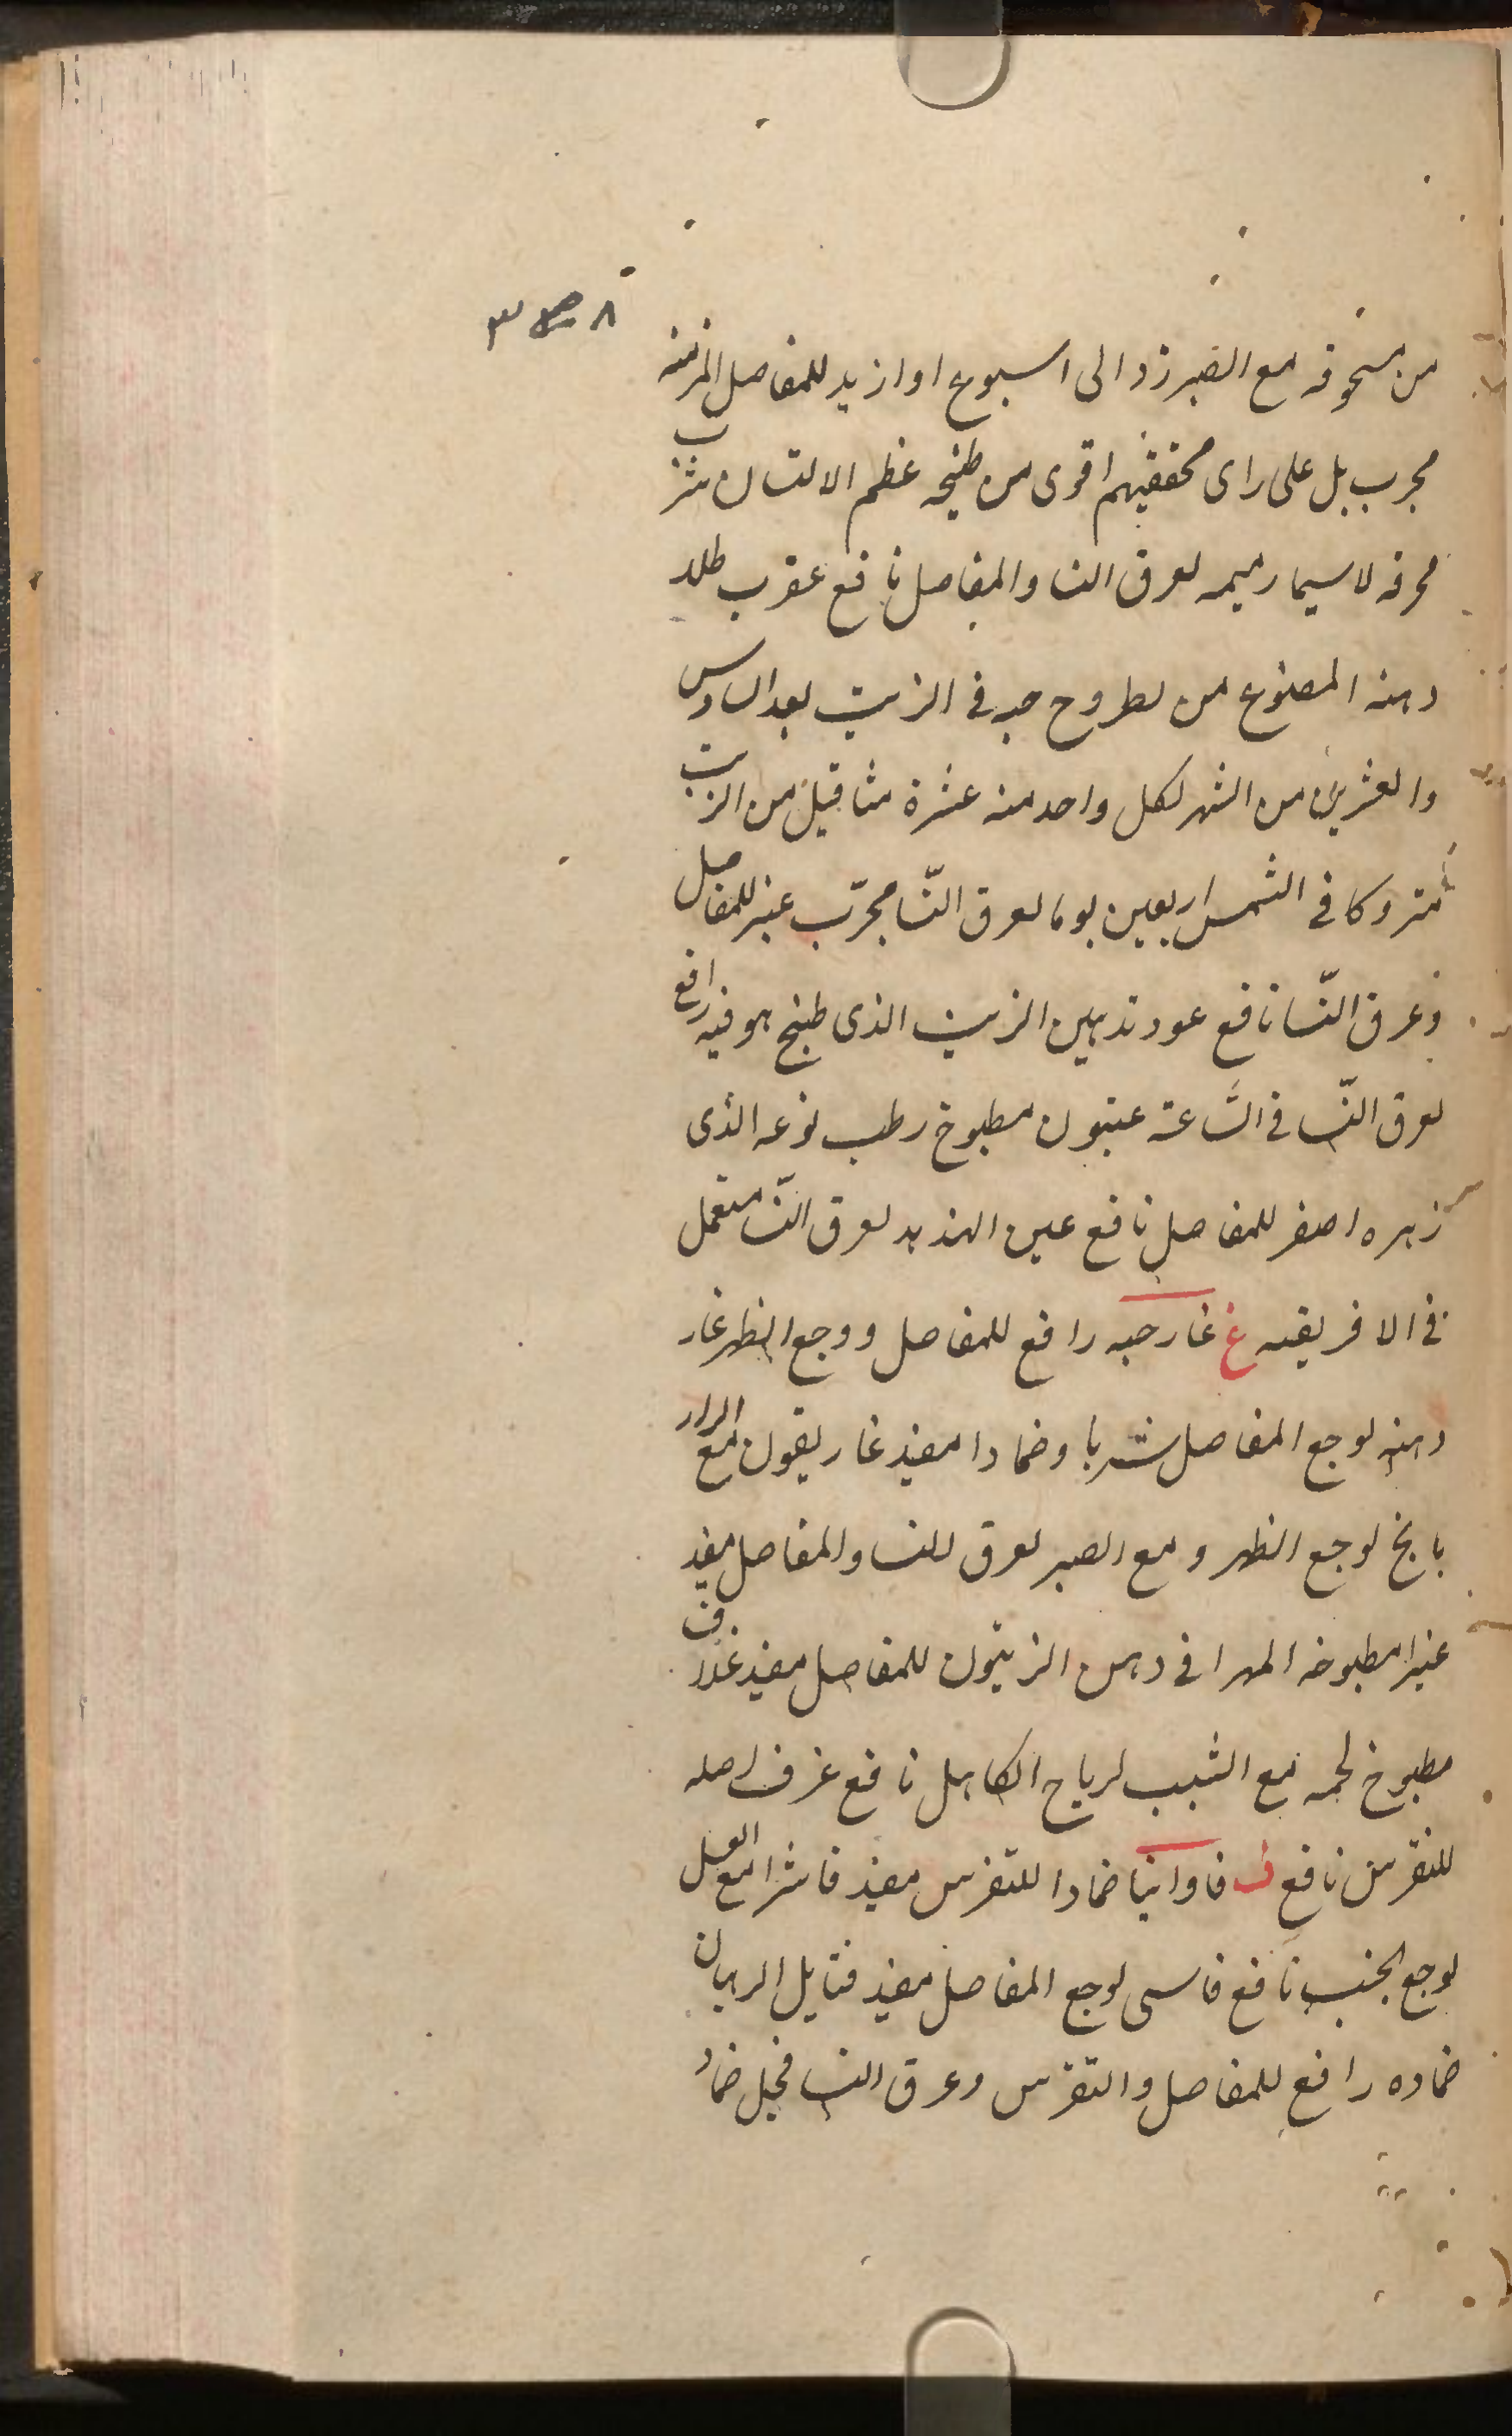 من مسحوقه مع الطبرزد الى اسبوع او ازيد للمفاصل المزمنه
مجرب بل على راى محققيهم اقوى من طبيخه عظم الانسان شرب
محرقه لاسيما رميمه لعرق النسا والمفاصل نافع عقرب طلاء
دهنه المصنوع من لطروح حيه فى الزيت بعد السادس
والعشرين من الشهر لكل واحد منه عشرة مثاقيل من الزيت
متروكا فى الشمس اربعين يوما لعرق النّسا مجرّب عنبر للمفاصل
وعرق النّسا نافع عود تدهين الزيت الذى طبخ هو فيه رافع
لعرق النّسا فى السّاعة عينون مطبوخ رطب نوعه الذى
زهره اصفر للمفاصل نافع عين الهدهد لعرق النّسا مستعمل
فى الافريقيه غ غار حبه رافع للمفاصل ووجع الظهر غار
دهنه لوجع المفاصل شربا وضمادا مفيد غاريقون مع الرازيانج
بانج لوجع الظهر ومع الصبر لعرق النسا والمفاصل مفيد
غبيرا مطبوخه المهرا فى دهن الزيتون للمفاصل مفيد غداف
مطبوخ لحمه مع الشبت لرياح الكاهل نافع غرف اصله
للنقرس نافع ف فاوانيا ضمادا للنقرس مفيد فاشرا مع العسل
لوجع الجنب نافع فاسى لوجع المفاصل مفيد فتايل الرهبان
ضماده رافع للمفاصل والنقرس وعرق النسا فجل ضماد